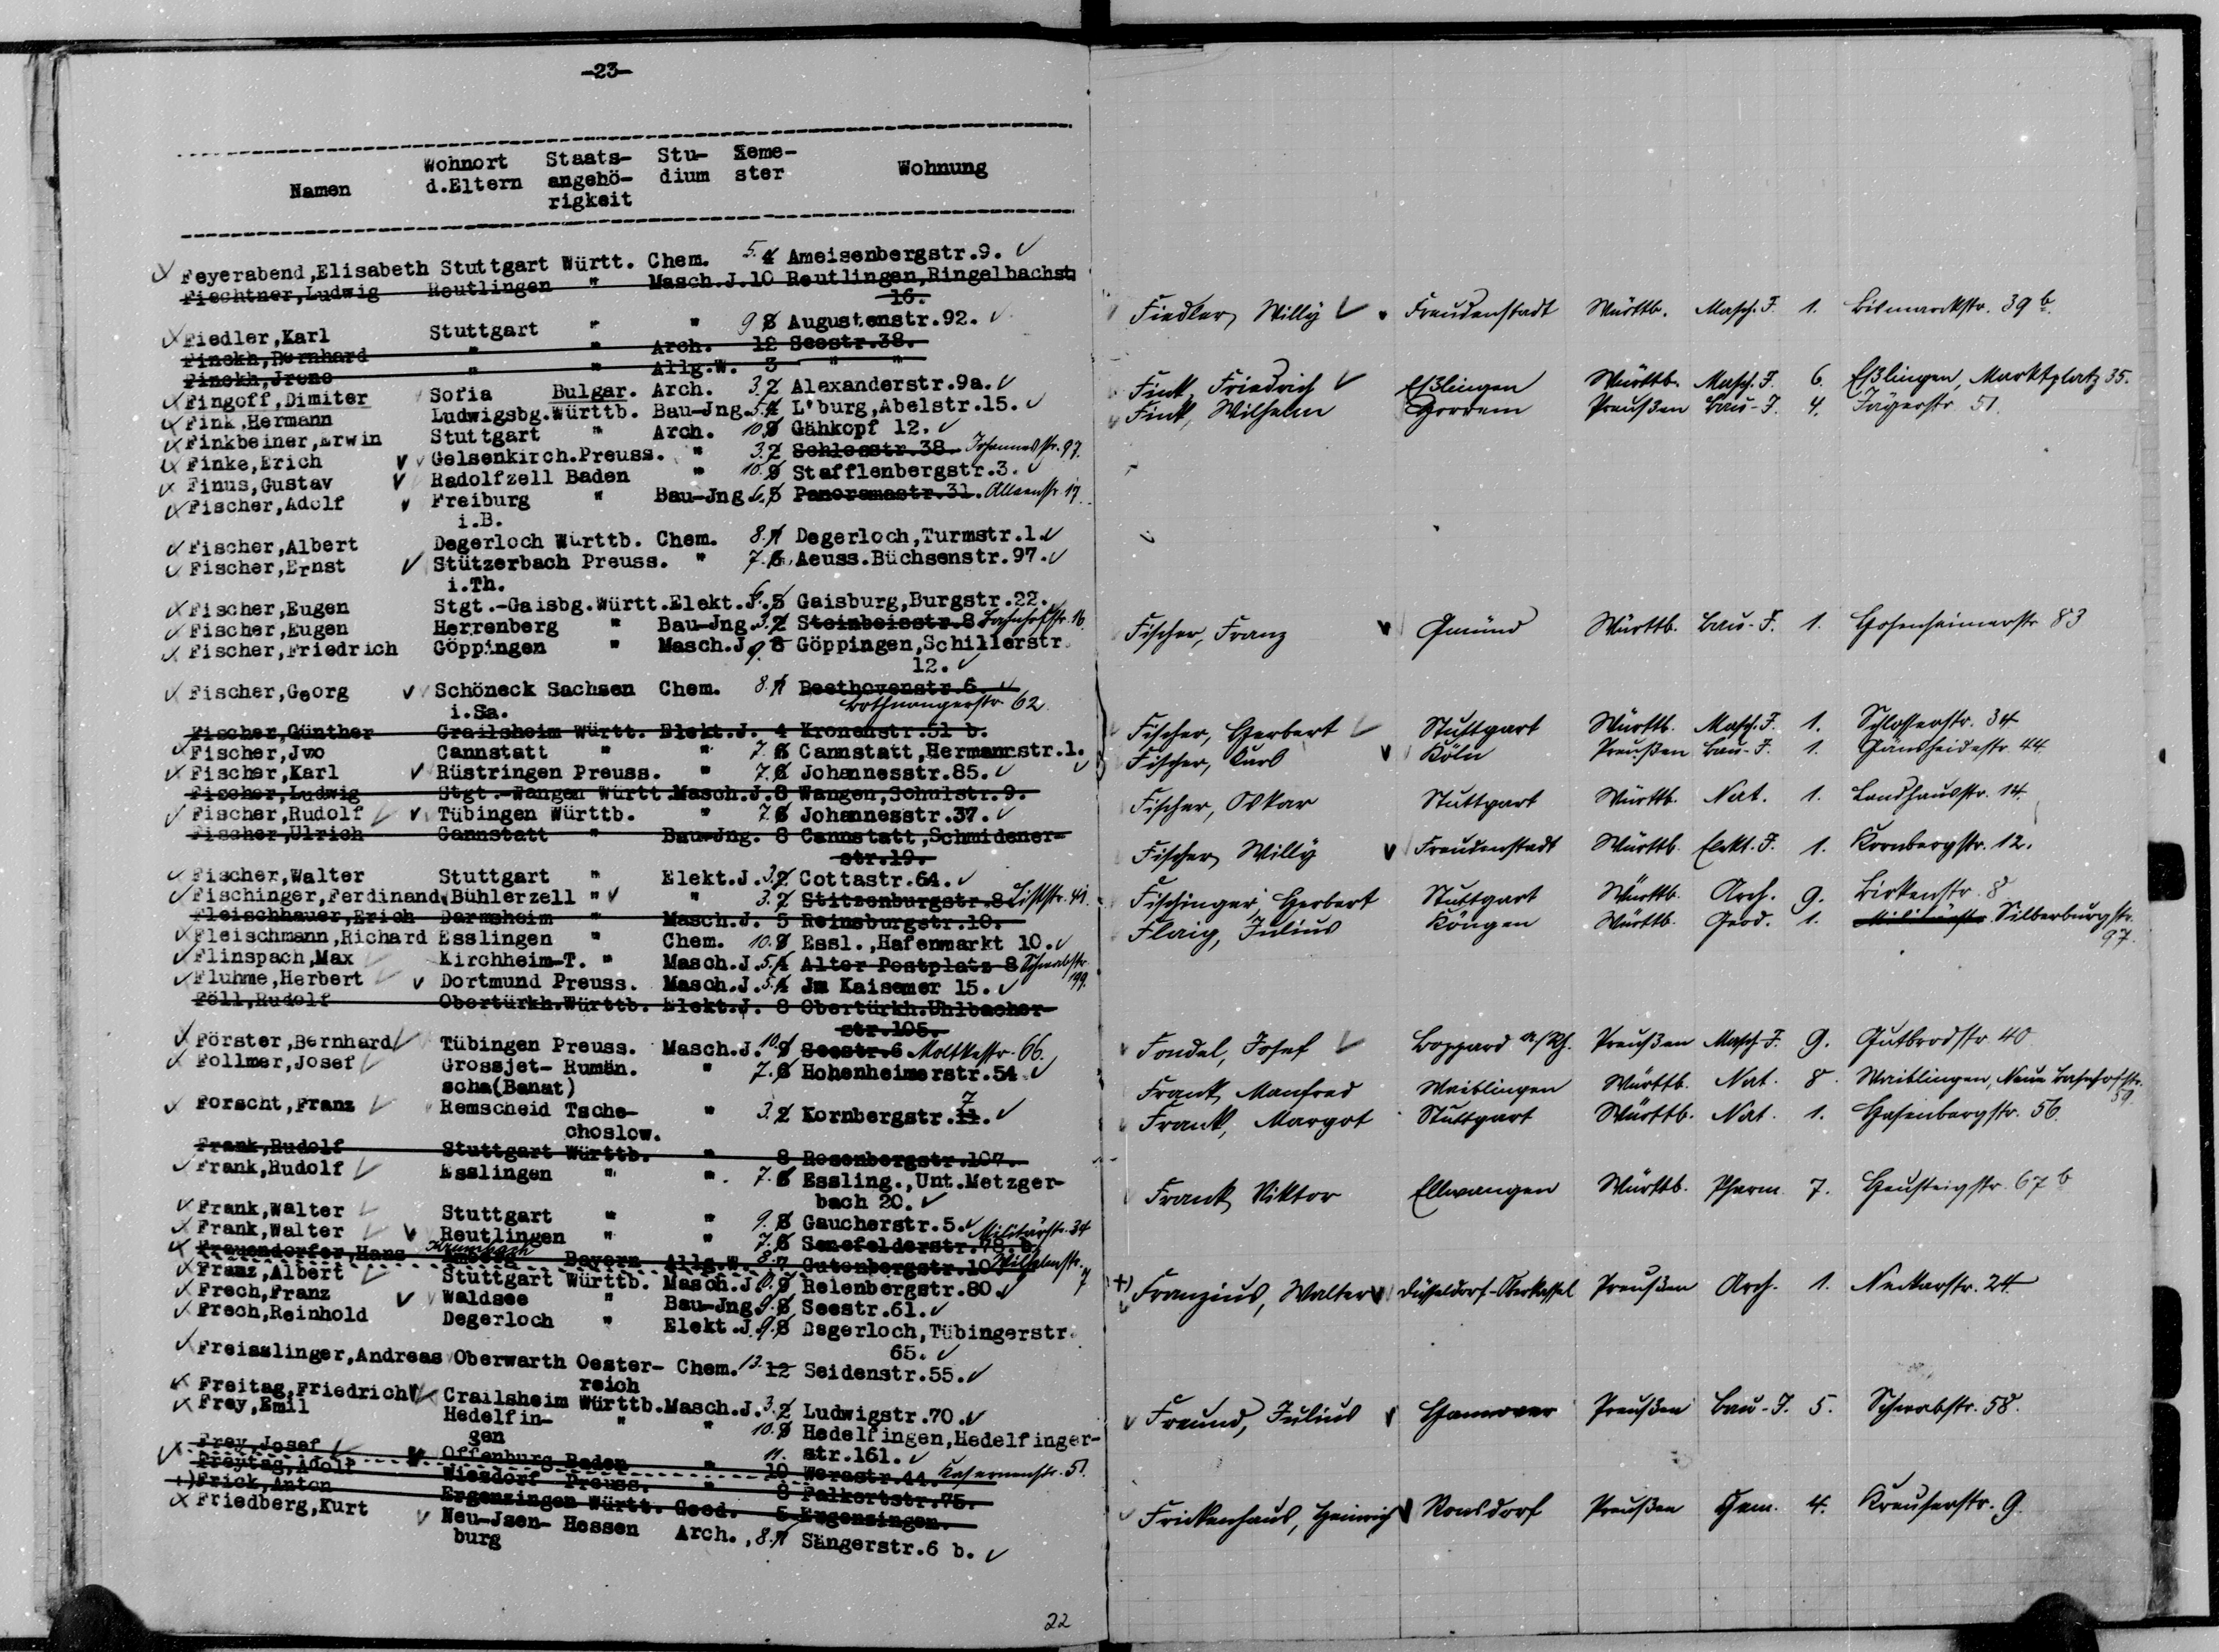 -23-
Namen Wohnort d.Eltern Staats-angehö-rigkeit Stu-dium Seme-ster Wohnung
Feyerabend,Elisabeth Stuttgart Württ. Chem. 5. 4 Ameisenbergstr.9.
Fiechtner,Ludwig Reutlingen " Masch.J.10 Reutlingen,Ringelbachst
16.
Fiedler,Karl Stuttgart " " 9 8 Augustenstr.92.
Finckh,Bernhard " " Arch. 12 Seestr.38.
Finckh,Jrene " " Allg.W. 3 " "
Fingoff,Dimiter Sofia Bulgar. Arch. 3. 2 Alexanderstr.9a.
Fink,Hermann Ludwigsbg.Württb. Bau-Jng. 5. 4 L'burg,Abelstr.15.
Finkbeiner,Erwin Stuttgart " Arch. 10. 9 Gähkopf 12.
Finke,Erich Gelsenkirch.Preuss. " 3. 2 Schlosstr.38. Johannesstr. 97.
Finus,Gustav Radolfzell Baden " 10. 9 Stafflenbergstr.3.
Fischer,Adolf Freiburg " Bau-Jng 6. 5 Panoramastr.31. Alleenstr. 17.
i.B.
Fischer,Albert Degerloch Württb. Chem. 8. 7 Degerloch,Turmstr.1.
Fischer,Ernst Stützerbach Preuss. " 7. 6 Aeuss.Büchsenstr.97.
i.Th.
Fischer,Eugen Stgt.-Gaisbg.Württ.Elekt.J. 6. 5 Gaisburg,Burgstr.22.
Fischer,Eugen Herrenberg " Bau-Jng. 3. 2 Steinbeisstr.8 Bahnhofstr. 16.
Fischer,Friedrich Göppingen " Masch.J 9. 8 Göppingen,Schillerstr
12.
Fischer,Georg Schöneck Sachsen Chem. 8. 7 Beethovenstr.6.
i.Sa. Bothnangerstr. 62.
Fischer,Günther Crailsheim Württ. Elekt.J. 4 Kronenstr.51 b.
Fischer,Jvo Cannstatt " " 7. 6 Cannstatt,Hermannstr.1.
Fischer,Karl Rüstringen Preuss. " 7. 6 Johannesstr.85.
Fischer,Ludwig Stgt.-Wangen Württ.Masch.J.8 Wangen,Schulstr.9.
Fischer,Rudolf Tübingen Württb. " 7. 6 Johannesstr.37.
Fischer,Ulrich Cannstatt " Bau-Jng. 8 Cannstatt,Schmidener-
str.19.
Fischer,Walter Stuttgart " Elekt.J. 3. 2 Cottastr.64.
Fischinger,Ferdinand Bühlerzell " " 3. 2 Stitzenburgstr.8 Liststr. 41.
Fleischhauer,Erich Darmsheim " Masch.J. 5 Reinsburgstr.10.
Fleischmann,Richard Esslingen " Chem. 10. 9 Essl.,Hafenmarkt 10.
Flinspach,Max Kirchheim-T. " Masch.J. 5. 4 Alter Postplatz 8 Schwabstr. 199.
Fluhme,Herbert Dortmund Preuss. Masch.J. 5. 4 Jm Kaisemer 15.
Föll,Rudolf Obertürkh.Württb. Elekt.J. 8 Obertürkh.Uhlbacher-
str.105.
Förster,Bernhard Tübingen Preuss. Masch.J. 10. 9 Seestr.6 Moltkestr. 66.
Follmer,Josef Grossjet- Rumän. " 7. 6 Hohenheimerstr.54
scha(Banat)
Forscht,Franz Remscheid Tsche- " 3. 2 Kornbergstr.11. 7
choslow.
Frank,Rudolf Stuttgart Württb. " 8 Rosenbergstr.107.
Frank,Rudolf Esslingen " ". 7. 6 Essling.,Unt.Metzger-
bach 20.
Frank,Walter Stuttgart " " 9. 8 Gaucherstr.5.
Frank,Walter Reutlingen " " 7. 6 Senefelderstr.78.b. Militärstr. 34
Frauendorfer,Hans Krumbach Bayern Allg.W. 8. 7 Gutenbergstr.10 Wilhelmstr. 7
Franz,Albert Stuttgart Württb. Masch.J 10. 9 Relenbergstr.80.
Frech,Franz Waldsee " Bau-Jng 9. 8 Seestr.61.
Frech,Reinhold Degerloch " Elekt.J. 9. 8 Degerloch,Tübingerstr
65.
Freisslinger,Andreas Oberwarth Oester- Chem. 13. 12 Seidenstr.55.
reich
Freitag,Friedrich Crailsheim Württb.Masch.J. 3. 2 Ludwigstr.70.
Frey,Emil Hedelfin- " " 10. 9 Hedelfingen,Hedelfinger-
gen str.161.
Frey,Josef Offenburg Baden " 11. 10 Werastr.44. Kasernenstr. 51.
Freytag,Adolf Wiesdorf Preuss. " 8 Falkertstr.75.
+)Frick,Anton Ergenzingen Württ. Geod. 5 Ergenzingen.
Friedberg,Kurt Neu-Jsen- Hessen Arch., 8. 7 Sängerstr.6 b.
burg
22
Fiedler, Willy Freudenstadt Württb. Masch. J. 1. Bismarckstr. 39 b.
Fink, Friedrich Eßlingen Württb. Masch. J. 6. Eßlingen, Marktplatz 35.
Fink, Wilhelm Preußen Bau-J. 4. Jägerstr. 51.
Fischer, Franz Gmünd Württb. Bau-J. 1. Hohenheimerstr. 83
Fischer, Herbert Stuttgart Württb. Masch. J. 1. Schlosserstr. 34
Fischer, Karl Köln Preußen Bau-J. 1. Gänsheidestr. 44
Fischer, Oskar Stuttgart Württb. Nat. 1. Landhausstr. 14.
Fischer, Willy Freudenstadt Württb. Elekt. J. 1. Kornbergstr. 12.
Fischinger, Herbert Stuttgart Württb. Arch. 9. Birkenstr. 8
Flaig, Julius Köngen Württb. Geod. 1. Militärstr. Silberburgstr. 97.
Fondel, Josef Boppard a/Rh. Preußen Masch. J. 9. Gutbrodstr. 40
Frank, Manfred Waiblingen Württb. Nat. 8. Waiblingen, Neue Bahnhofstr. 59.
Frank, Margot Stuttgart Württb. Nat. 1. Hasenbergstr. 56
Frank, Viktor Ellwangen Württb. Pharm. 7. Heusteigstr. 67 b
+) Franzius, Walter Düsseldorf-Oberkassel Preußen Arch. 1. Neckarstr. 24
Freund, Julius Hannover Preußen Bau-J. 5. Schwabstr. 58.
Frickenhaus, Heinrich Ronsdorf Preußen Chem. 4. Kreuserstr. 9.